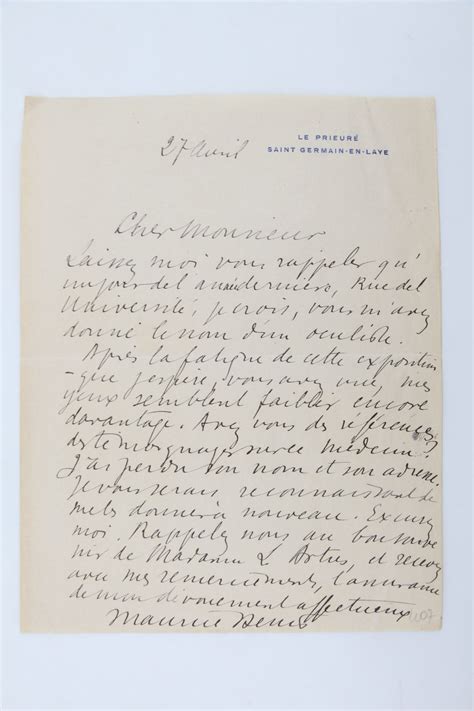 LE PRIEURÉ
SAINT GERMAIN-EN-LAYE
27 Avril
Cher Monsieur
Laissez moi vous rappeler qu'
un jour de l'année dernière, Rue de l'
Université, je crois, vous m'avez
donné le nom d'un oculiste.
Après la fatigue de cette exposition
- que j'espère, vous avez vue, mes
yeux semblent faiblir encore
davantage. Avez vous des références,
des temoignages sur ce médecin?
J'ai perdu son nom et son adresse.
Je vous serais reconnaissant de
me les donner à nouveau. Excusez
moi. Rappelez nous au bon souve
nir de Madame L Artus, et recevez
avec mes remerciements, l'assurance
de mon dévouement affectueux
Maurice Denis